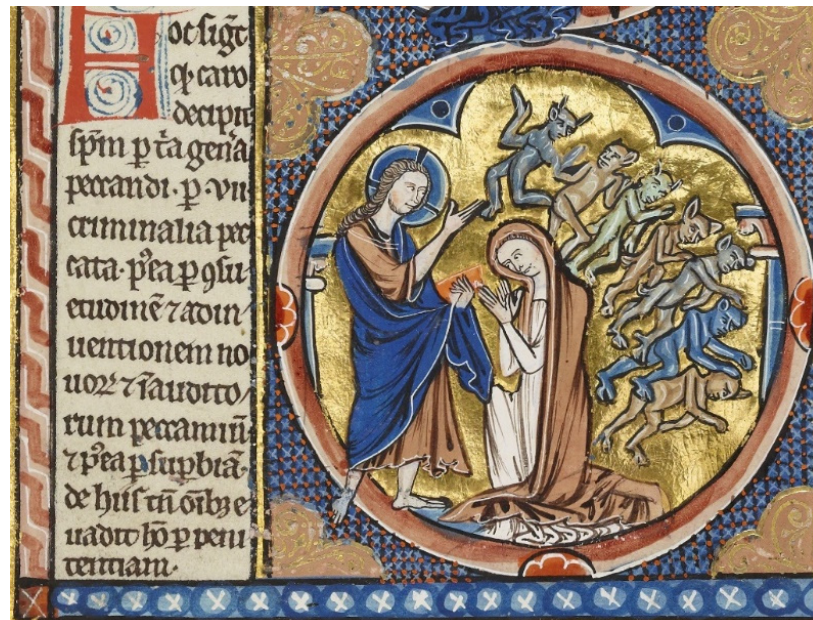 Hoc sig̃t
ꝙ caro
decipit
sp̄m ꝑ t̃a gen̾a
peccandi. ꝑ vii
criminalia pec
cata. p̾ea ꝑ ꝯsu
etudinē ⁊ adin
uentionem no
uoꝝ ⁊ īaudito
rum peccaminū
⁊ p̾ea ꝑ suꝑbiā.
de hiis tn̄ oībꝫ e
uadit hō ꝑ peni
tentiam.